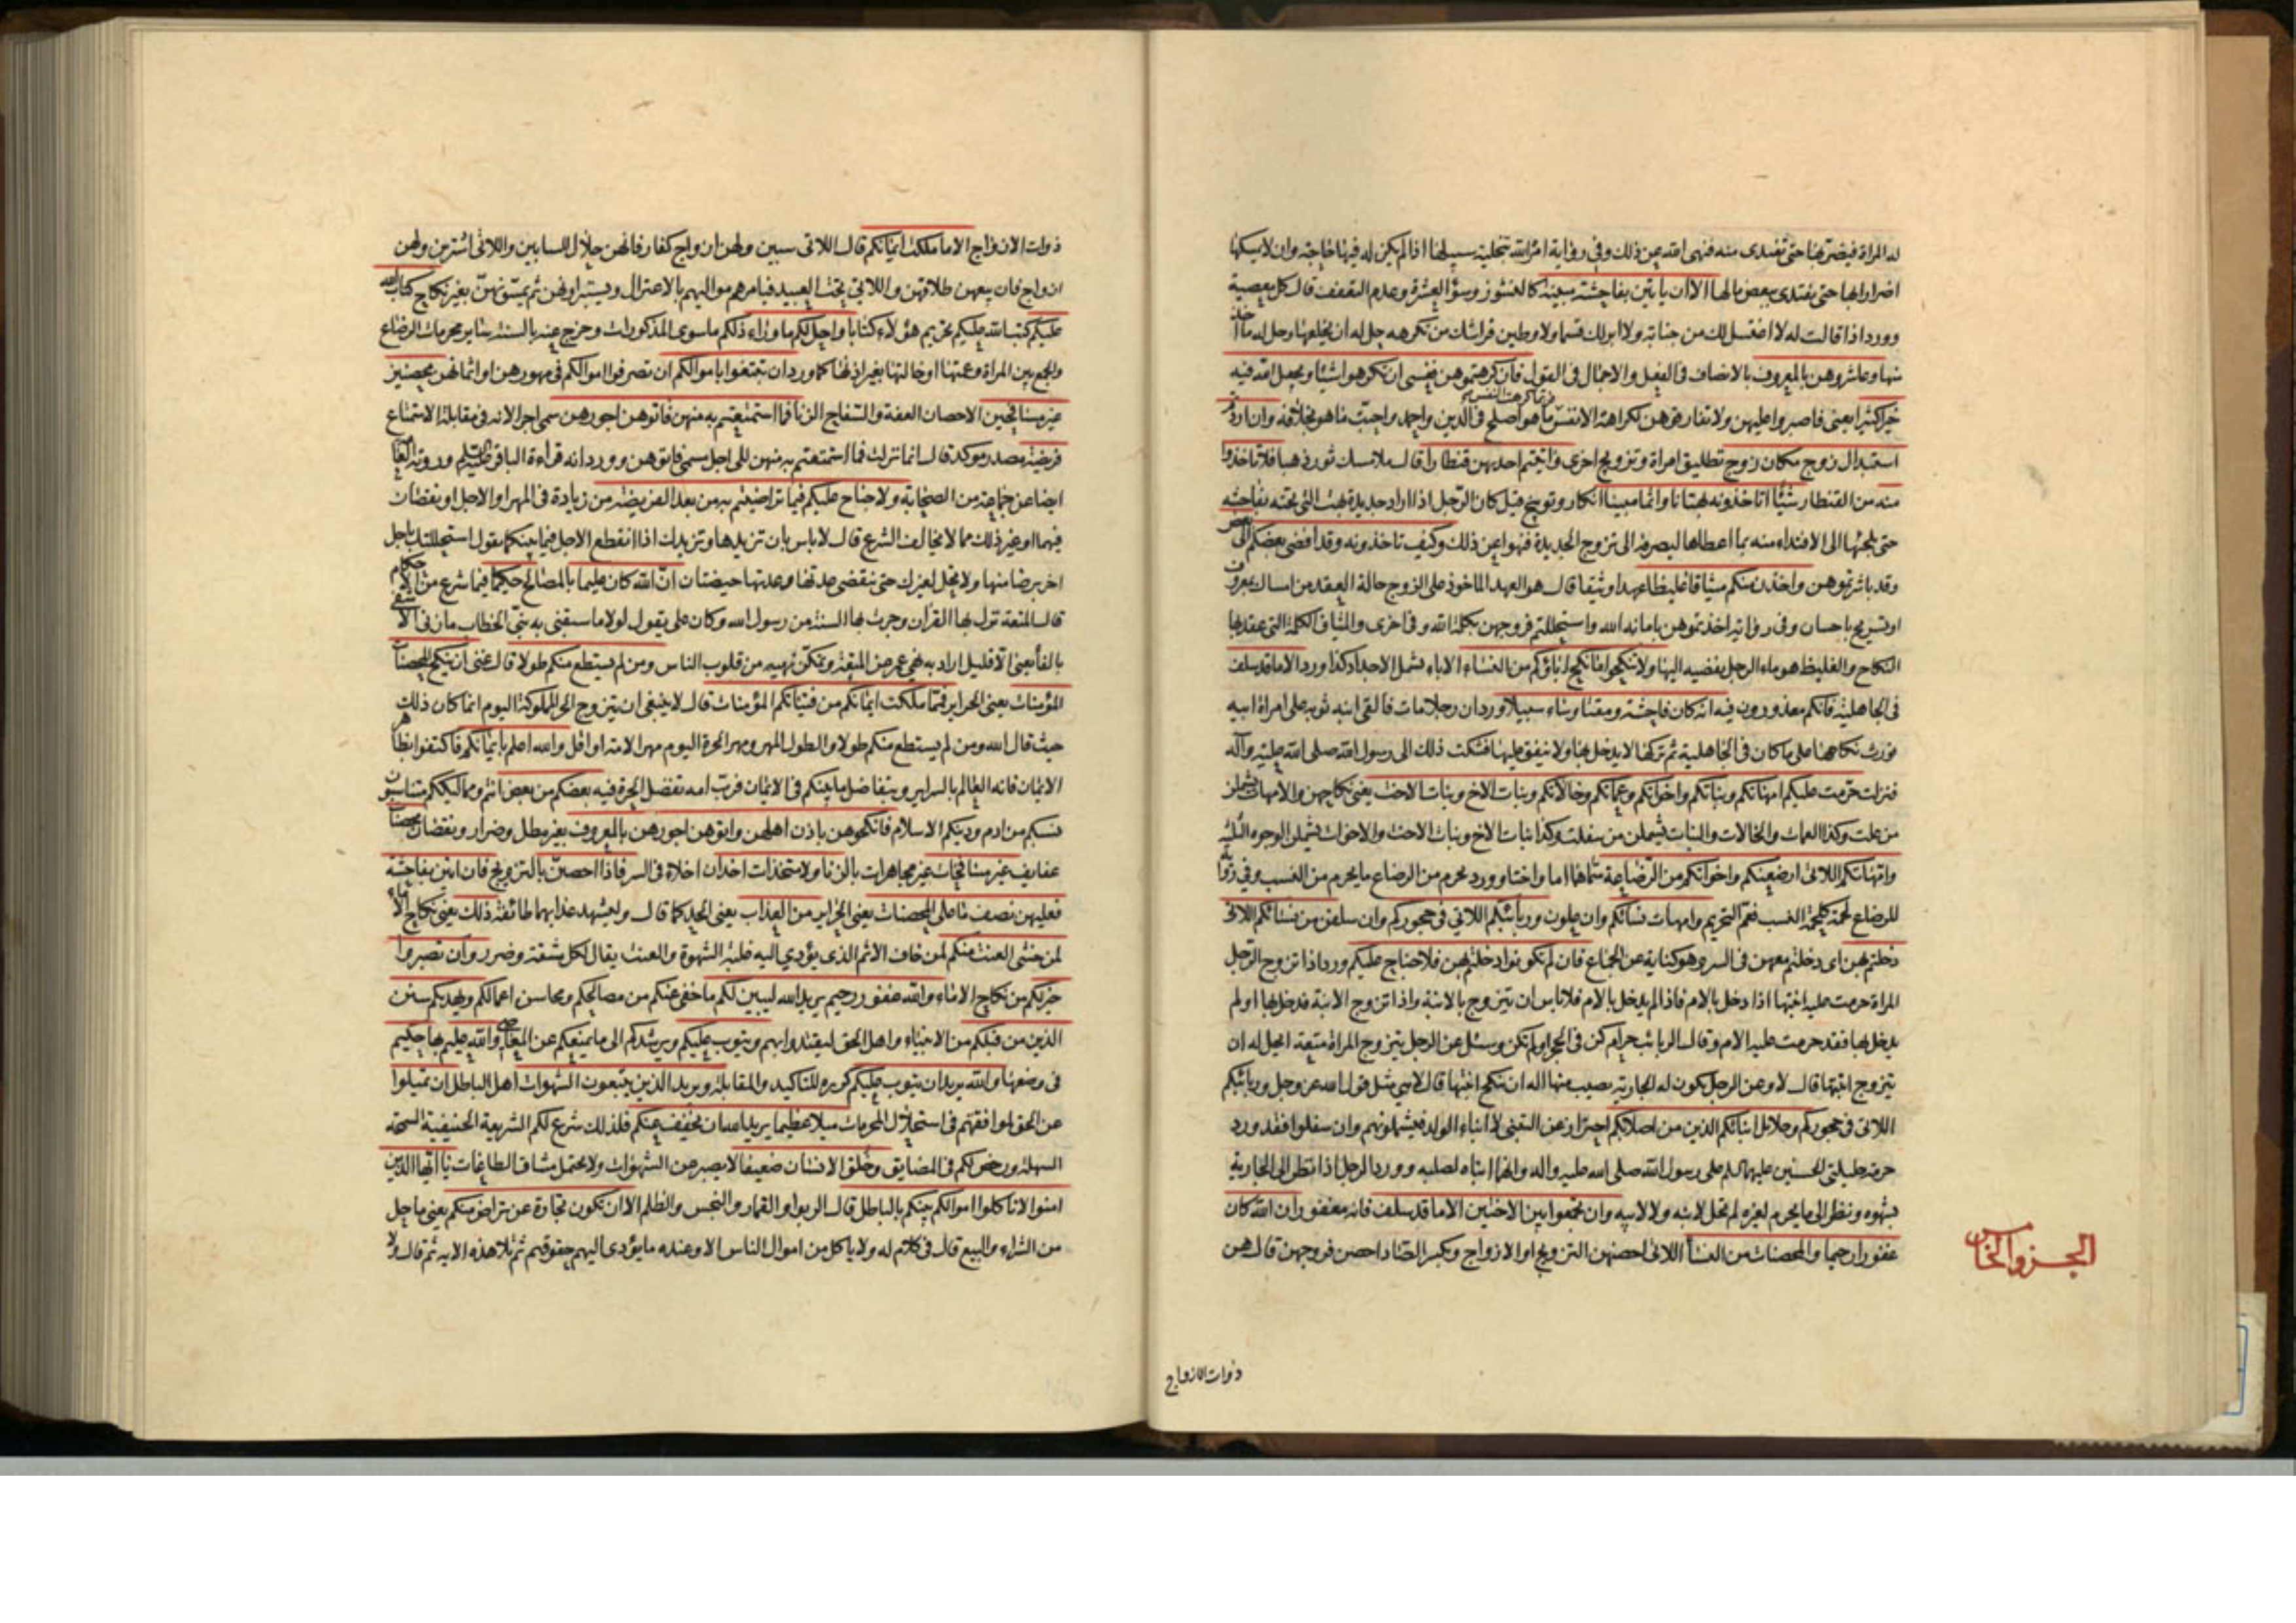 له المراة فيضر بها حتى تفتدى منه فنهى الله عن ذلك وفى رواية امر الله بتخلية سبيلها اذا لم يكن له فيها حاجة وان لا يمسكها
اضرارا بها حتى تفتدى ببعض مالها الا ان ياتين بفاحشة مبينة كالنشوز وسوء العشرة وعدم التعفف قال كل معصية
وورد اذا قالت له لا اغتسل لك من جنابة ولا ابر لك قسما ولاوطين فراشك من تكرهه حل له ان يخلعها وحل له ما اخذ
منها وعاشروهن بالمعروف بالانصاف فى الفعل والاجمال فى القول فان كرهتموهن فعسى ان تكرهوا شيئا ويجعل الله فيه
خيرا كثيرا يعنى فاصبروا عليهن ولا تفارقوهن لكراهة الانفس فربما كرهت النفس ما هو اصلح فى الدين واحمد واحبت ما هو بخلافه وان اردتم
استبدال زوج مكان زوج تطليق امراة وتزويج اخرى واتيتم احديهن قنطارا قال ملا مسك ثور ذهبا فلا تاخذوا
منه من القنطار شيئا اتاخذونه بهتانا واثما مبينا انكار وتوبيخ قيل كان الرجل اذا اراد جديدة بهت التى تحته بفاحشة
حتى يلجئها الى الافتداء منه بما اعطاها ليصرفه الى تزوج الجديدة فنهوا عن ذلك وكيف تاخذونه وقد افضى بعضكم الى بعض
وقد باشرتموهن واخذن منكم ميثاقا غليظا عهدا وثيقا قال هو العهد الماخوذ على الزوج حالة العقد من امساك بمعروف
او تسريح باحسان وفى رواية اخذتموهن بامانة الله واستحللتم فروجهن بكلمة الله وفى اخرى والميثاق الكلمة التى عقد بها
النكاح والغليظ هو ماء الرجل يفضيه اليها ولا تنكحوا ما نكح اباؤكم من النساء الاباء يشمل الاجداد كذا ورد الا ما قد سلف
فى الجاهلية فانكم معذورون فيه انه كان فاحشة ومقتا وساء سبيلا ورد ان رجلا مات فالقى ابنه ثوبه على امراة ابيه
فورث نكاحها على ما كان فى الجاهلية ثم تركها لا يدخل بها ولا ينفق عليها فشكت ذلك الى رسول الله صلى الله عليه وآله
فنزلت حرمت عليكم امهاتكم وبناتكم واخواتكم وعماتكم وخالاتكم وبنات الاخ وبنات الاخت يعنى نكاحهن والامهات يشملن
من علت وكذا العمات والخالات والبنات يشملن من سفلت وكذا بنات الاخ وبنات الاخت والاخوات يشملن الوجوه الثلثة
وامهاتكم اللاتى ارضعنكم واخواتكم من الرضاعة سماهما اما واختا وورد يحرم من الرضاع ما يحرم من النسب وفى رواية
للرضاع لحمة كلحمة النسب فعم التحريم وامهات نسائكم وان علون وربائبكم اللاتى فى حجوركم وان سفلن من نسائكم اللاتى
دخلتم بهن اى دخلتم معهن فى الستر وهو كناية عن الجماع فان لم تكونوا دخلتم بهن فلا جناح عليكم ورد اذا تزوج الرجل
المراة حرمت عليه ابنتها اذا دخل بالام فاذا لم يدخل بالام فلا باس ان يتزوج بالابنة واذا تزوج الابنة فدخل بها او لم
يدخل بها فقد حرمت عليه الام وقال الربائب حرام كن فى الحجر او لم تكن وسئل عن الرجل يتزوج المراة متعة ايحل له ان
يتزوج ابنتها قال لا وعن الرجل تكون له الجارية يصيب منها اله ان ينكح ابنتها قال لا هى مثل قول الله عز وجل وربائبكم
اللاتى فى حجوركم وحلائل ابنائكم الذين من اصلابكم احتراز عن المتبنى لا ابناء الولد فيشملونهم وان سفلوا فقد ورد
حرمة حليلتى الحسنين عليهما السلم على رسول الله صلى الله عليه واله وانهما ابناه لصلبه وورد الرجل اذا نظر الى الجارية
بشهوة ونظر الى ما يحرم لغيره لم تحل لابنه ولا لابيه وان تجمعوا بين الاختين الا ما قد سلف فانه مغفور ان الله كان
غفورا رحيما والمحصنات من النساء اللاتى احصنهن التزويج او الازواج وبكسر الصاد احصن فروجهن قال هن
الجزو الخامس
ذوات الازواج
ذوات الازواج الا ما ملكت ايمانكم قال اللاتى سبين ولهن ازواج كفار فانهن حلال للسابين واللاتى اشترين ولهن
ازواج فان بيعهن طلاقهن واللاتى تحت العبيد فيامرهم مواليهم بالاعتزال ويستبراونهن ثم يمسونهن بغير نكاح كتاب الله
عليكم كتب الله عليكم تحريم هؤلاء كتابا واحل لكم ما وراء ذلكم ما سوى المذكورات وخرج عنه بالسنة ساير محرمات الرضاع
والجمع بين المراة وعمتها او خالتها بغير اذنها كما ورد ان تبتغوا باموالكم ان تصرفوا اموالكم فى مهورهن او اثمانهن محصنين
غير مسافحين الاحصان العفة والسفاح الزنا فما استمتعتم به منهن فاتوهن اجورهن سمى اجرا لانه فى مقابلة الاستمتاع
فريضة مصدر موكد قال انما نزلت فما استمتعتم به منهن الى اجل مسمى فاتوهن وورد انه قراءة الباقر عليه السلم وروته العامة
ايضا عن جماعة من الصحابة ولا جناح عليكم فيما تراضيتم به من بعد الفريضة من زيادة فى المهر او الاجل او نقصان
فيهما او غير ذلك مما لا يخالف الشرع قال لا باس بان تزيدها وتزيدك اذا انقطع الاجل فيما بينكما يقول استحللتك باجل
اخر برضا منها ولا تحل لغيرك حتى تنقضى عدتها وعدتها حيضتان ان الله كان عليما بالمصالح حكيما فيما شرع من الاحكام
قال المتعة نزل بها القران وجرت بها السنة من رسول الله وكان على يقول لولا ما سبقنى به بنى الخطاب ما زنى الا شقى
بالفا يعنى الا قليل اراد به نهى عمر عن المتعة وتمكن نهيه من قلوب الناس ومن لم يستطع منكم طولا قال غنى ان ينكح المحصنات
المؤمنات يعنى الحراير فمما ملكت ايمانكم من فتياتكم المؤمنات قال لا ينبغى ان يتزوج الحر المملوكة اليوم انما كان ذلك
حيث قال الله ومن لم يستطع منكم طولا والطول المهر ومهر الحرة اليوم مهر الامة او اقل والله اعلم بايمانكم فاكتفوا بظاهر
الايمان فانه العالم بالسراير وبتفاضل ما بينكم فى الايمان فرب امة تفضل الحرة فيه بعضكم من بعض انتم ومماليككم متناسبون
نسبكم من ادم ودينكم الاسلام فانكحوهن باذن اهلهن واتوهن اجورهن بالمعروف بغير مطل وضرار ونقصان محصنات
عفايف غير مسافحات غير مجاهرات بالزنا ولا متخذات اخدان اخلاء فى السر فاذا احصن بالتزويج فان اتين بفاحشة
فعليهن نصف ما على المحصنات يعنى الحراير من العذاب يعنى الحد كما قال وليشهد عذابهما طائفة ذلك يعنى نكاح الاماء
لمن خشى العنت منكم لمن خاف الاثم الذى يؤدي اليه غلبة الشهوة والعنت يقال لكل مشقة وضرر وان تصبروا
خير لكم من نكاح الاماء والله غفور رحيم يريد الله ليبين لكم ما خفى عنكم من مصالحكم ومحاسن اعمالكم ويهديكم سنن
الذين من قبلكم من الانبياء واهل الحق لتقتدوا بهم ويتوب عليكم ويرشدكم الى ما يمنعكم عن المعاصى والله عليم بها حكيم
فى وضعها والله يريد ان يتوب عليكم كرره للتاكيد والمقابلة ويريد الذين يتبعون الشهوات اهل الباطل ان تميلوا
عن الحق لموافقتهم فى استحلال المحرمات ميلا عظيما يريد الله ان يخفف عنكم فلذلك شرع لكم الشريعة الحنيفية السمحة
السهلة ورخص لكم فى المضايق وخلق الانسان ضعيفا لا يصبر عن الشهوات ولا يحتمل مشاق الطاعات يا ايها الذين
امنوا لا تاكلوا اموالكم بينكم بالباطل قال الربوا والقمار والنجس والظلم الا ان تكون تجارة عن تراض منكم يعنى ما حل
من الشراء والبيع قال فى كلام له ولا ياكل من اموال الناس الا وعنده ما يؤدى اليهم حقوقهم ثم تلا هذه الاية ثم قال ولا